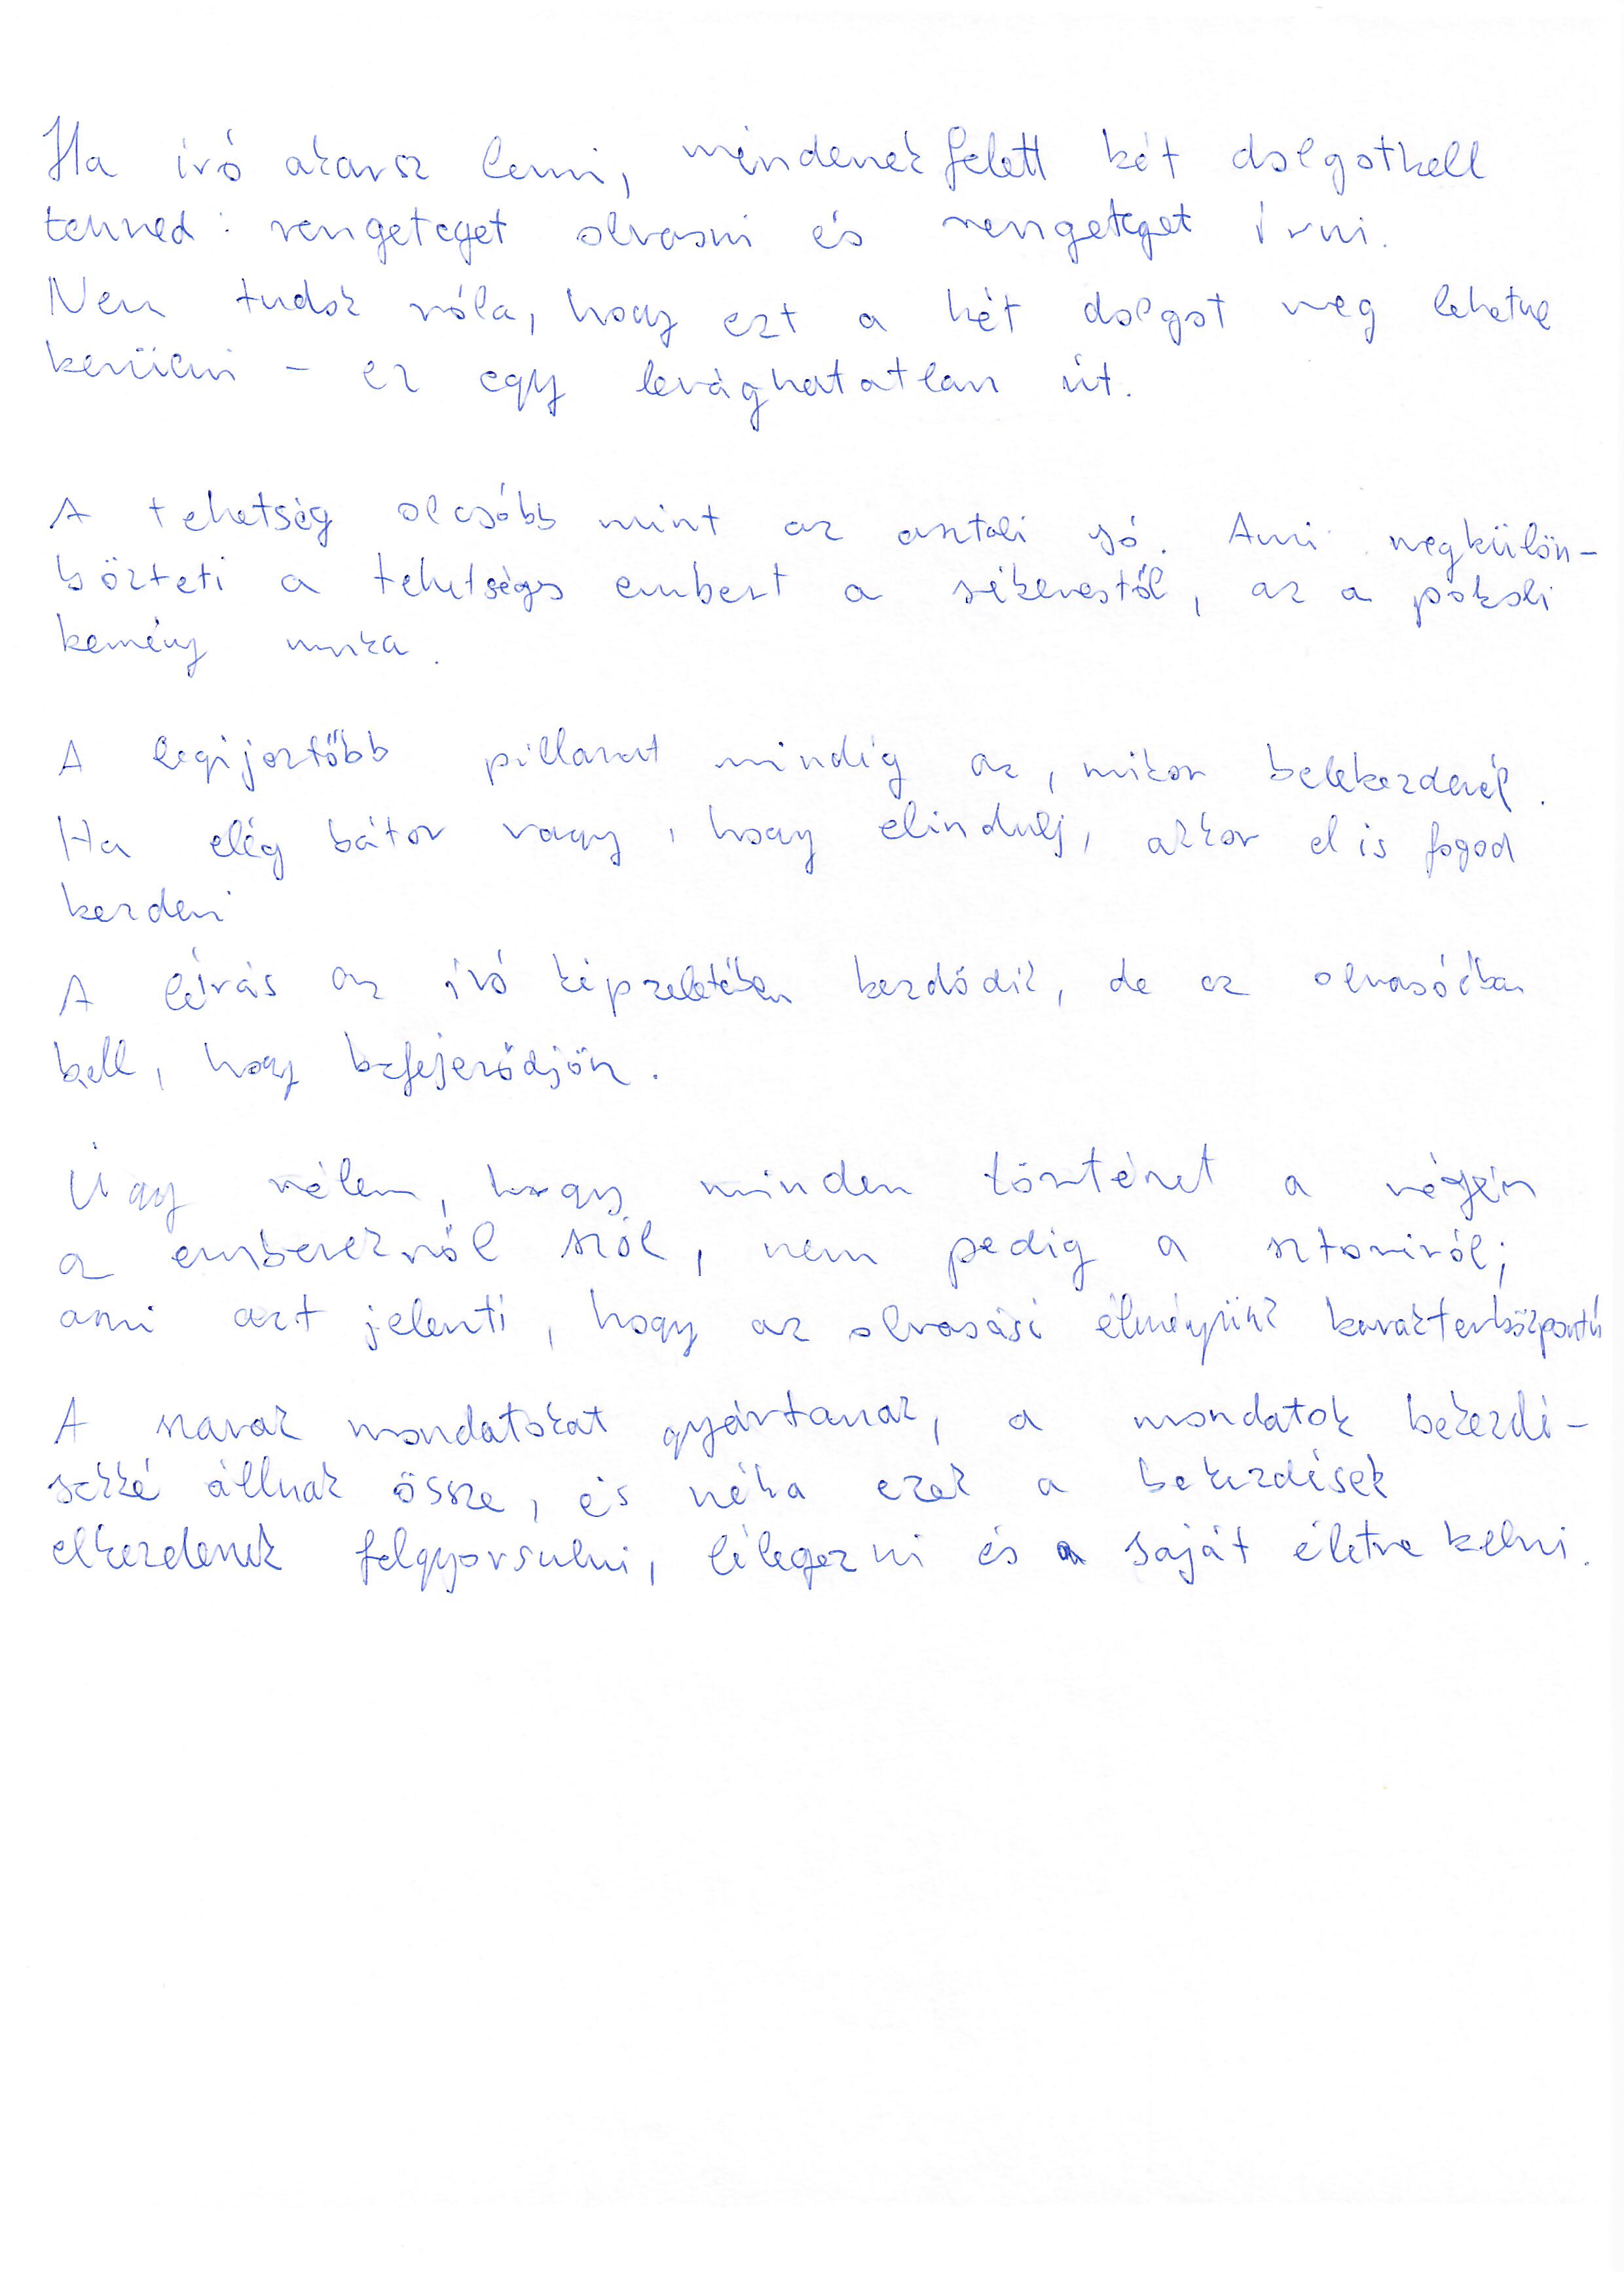 Ha író akarsz lenni, mindenekfelett két dolgot kell
tenned: rengeteget olvasni és rengeteget írni.
Nem tudok róla, hogy ezt a két dolgot meg lehetne
kerülni – ez egy levághatatlan út.
A tehetség olcsóbb mint az asztali só. Ami megkülön-
bözteti a tehetséges embert a sikerestől, az a pokoli
kemény munka.
A legijesztőbb pillanat mindig az, mikor belekezdenél.
Ha elég bátor vagy, hogy elindulj, akkor el is fogod
kezdeni
A leírás az író képzeletében kezdődik, de az olvasóéban
kell, hogy befejeződjön.
Úgy vélem, hogy minden történet a végén
az emberekről szól, nem pedig a sztoriról;
ami azt jelenti, hogy az olvasási élményünk karakterközpontú
A szavak mondatokat gyártanak, a mondatok bekezdé-
sekké állnak össze, és néha ezek a bekezdések
elkezdenek felgyorsulni, lélegezni és saját életre kelni.